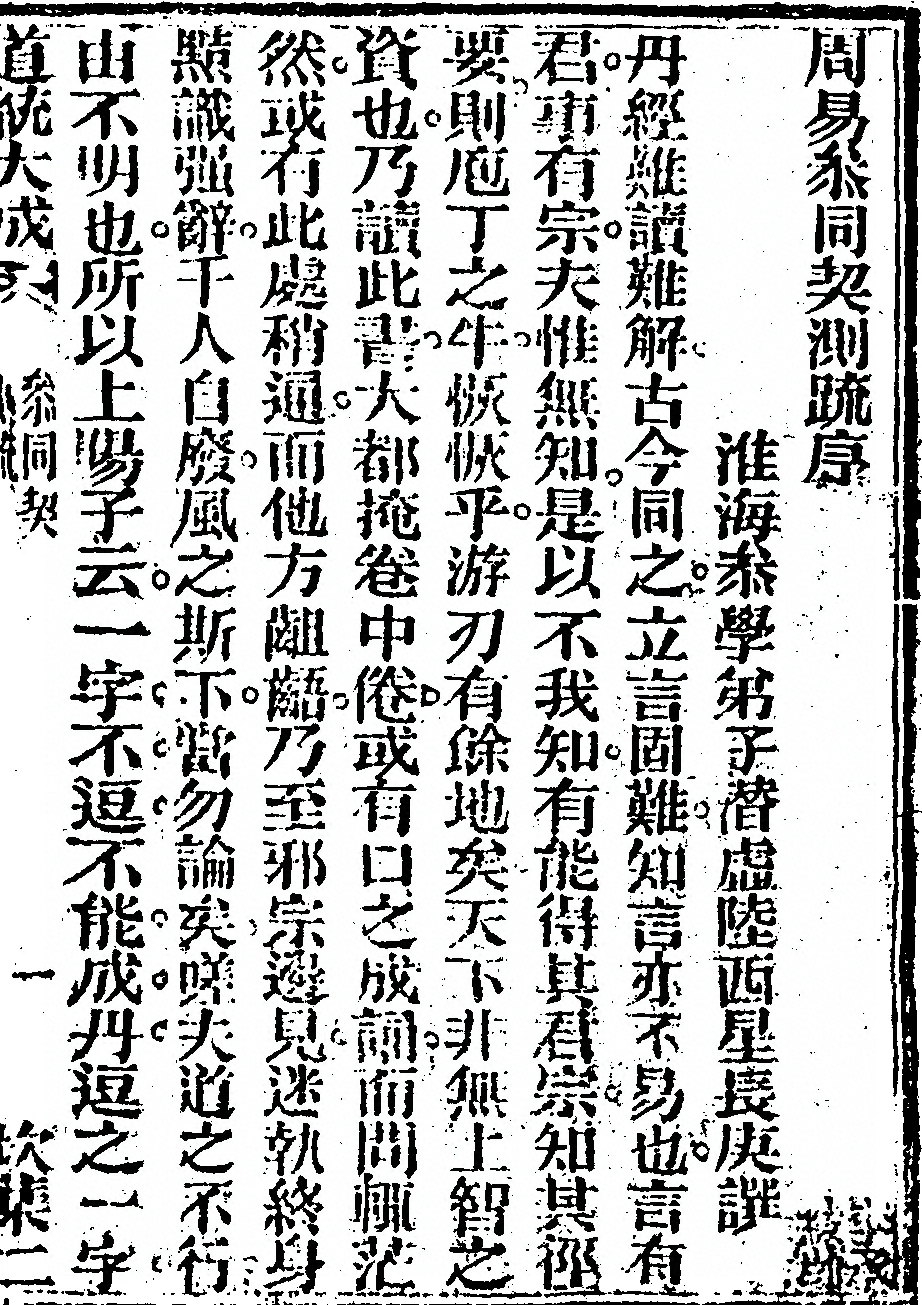 周易叅同契測疏序
淮海叅學弟子潛虛陸西星長庚譔
丹經難讀難解古今同之立言固難知言亦不易也言有
君事有宗夫惟無知是以不我知有能得其君宗知其徑
要則庖丁之牛恢恢乎游刃有餘地矣天下非無上智之
資也乃讀此書大都掩卷中倦或有口之成誦而問輒茫
然或有此處稍通而他方齟齬乃至邪宗邊見迷執終身
點識强辭千人自廢風之斯下當勿論矣嗟夫道之不行
由不明也所以上陽子云一字不逗不能成丹逗之一字
道統大成 叅同契 一 坎集二